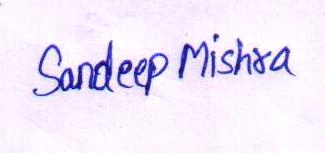 Sandeep Mishra